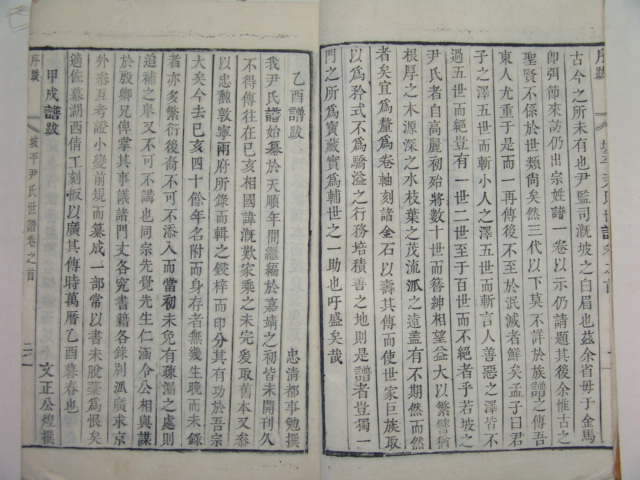 序跋
古今之所未有也尹監司漑坡之白眉也茲余省毋于金馬
卽弭節來訪仍出宗姓譜一卷以示仍請題其後余惟古之
聖賢不係於世類尙矣然三代以下莫不詳於族譜之傳吾
東人尤重乎是而一再傳後不至於泯滅者鮮矣孟子曰君
子之澤五世而斬小人之澤五世而斬言人善惡之澤皆不
過五世而絕豈有一世二世至于百世而不絕者乎若坡之
尹氏者自高麗初殆將數十世而簪紳相望益大以繁譬猶
根厚之木源深之水枝葉之茂流派之遠盖有不期然而然
者矣宜爲釐爲卷軸刻諸金石以壽其傳而使世家巨族取
以爲矜式不爲驕溢之行務培積善之地則是譜者豈獨一
門之所爲寶藏實爲輔世之一助也吁盛矣哉
序跋
坡平尹氏世譜卷之首
二
乙酉譜跋
忠清都事勉撰
我尹氏譜始纂於天順年間繼編於嘉靖之初皆未開刊久
不得傳往在己亥相國諱漑歎家乘之未完爰取舊本又叅
以忠勳敦寧兩府所錄而輯之鋟梓而印分其有功於吾宗
大矣今去己亥四十餘年名附而身存者無幾生晚而未錄
者亦多繁衍後裔不可不添入而當初未免有疎漏之處則
追補之擧又不可不講也同宗先覺先生仁涵令公相與謀
於殷卿兄俾掌其事議諸門丈各究書籍各錄別派廣求京
外叅互考證小變前規而纂成一部常以書未脫藁爲恨矣
適佐幕湖西倩工刻板以廣其傳時萬曆乙酉暮春也
甲戌譜跋
文正公煌撰